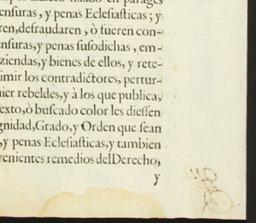 ensuras, y penas Eclesiasticas; y
ren, defraudaren, ò fueren con-
nsuras, y penas susodichas, em-
ziendas, y bienes de ellos, y rete-
imir los contradictores, pertur-
ier rebeldes, y à los que publica,
exto, ò buscado color les diessen
gnidad, Grado, y Orden que sean
, y penas Eclesiasticas, y tambien
venientes remedios del Derecho,
y